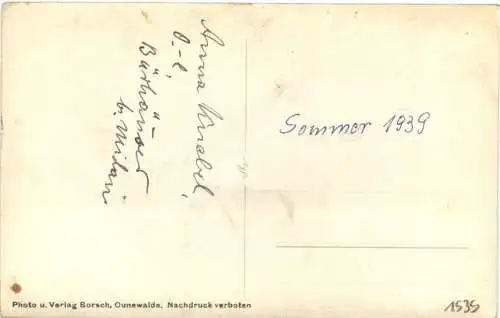 Anna Knobel,
O.-L.
Bärhäuser
b.
Sommer 1939
Photo u. Verlag Borsch, Cunewalde, Nachdruck verboten
1939